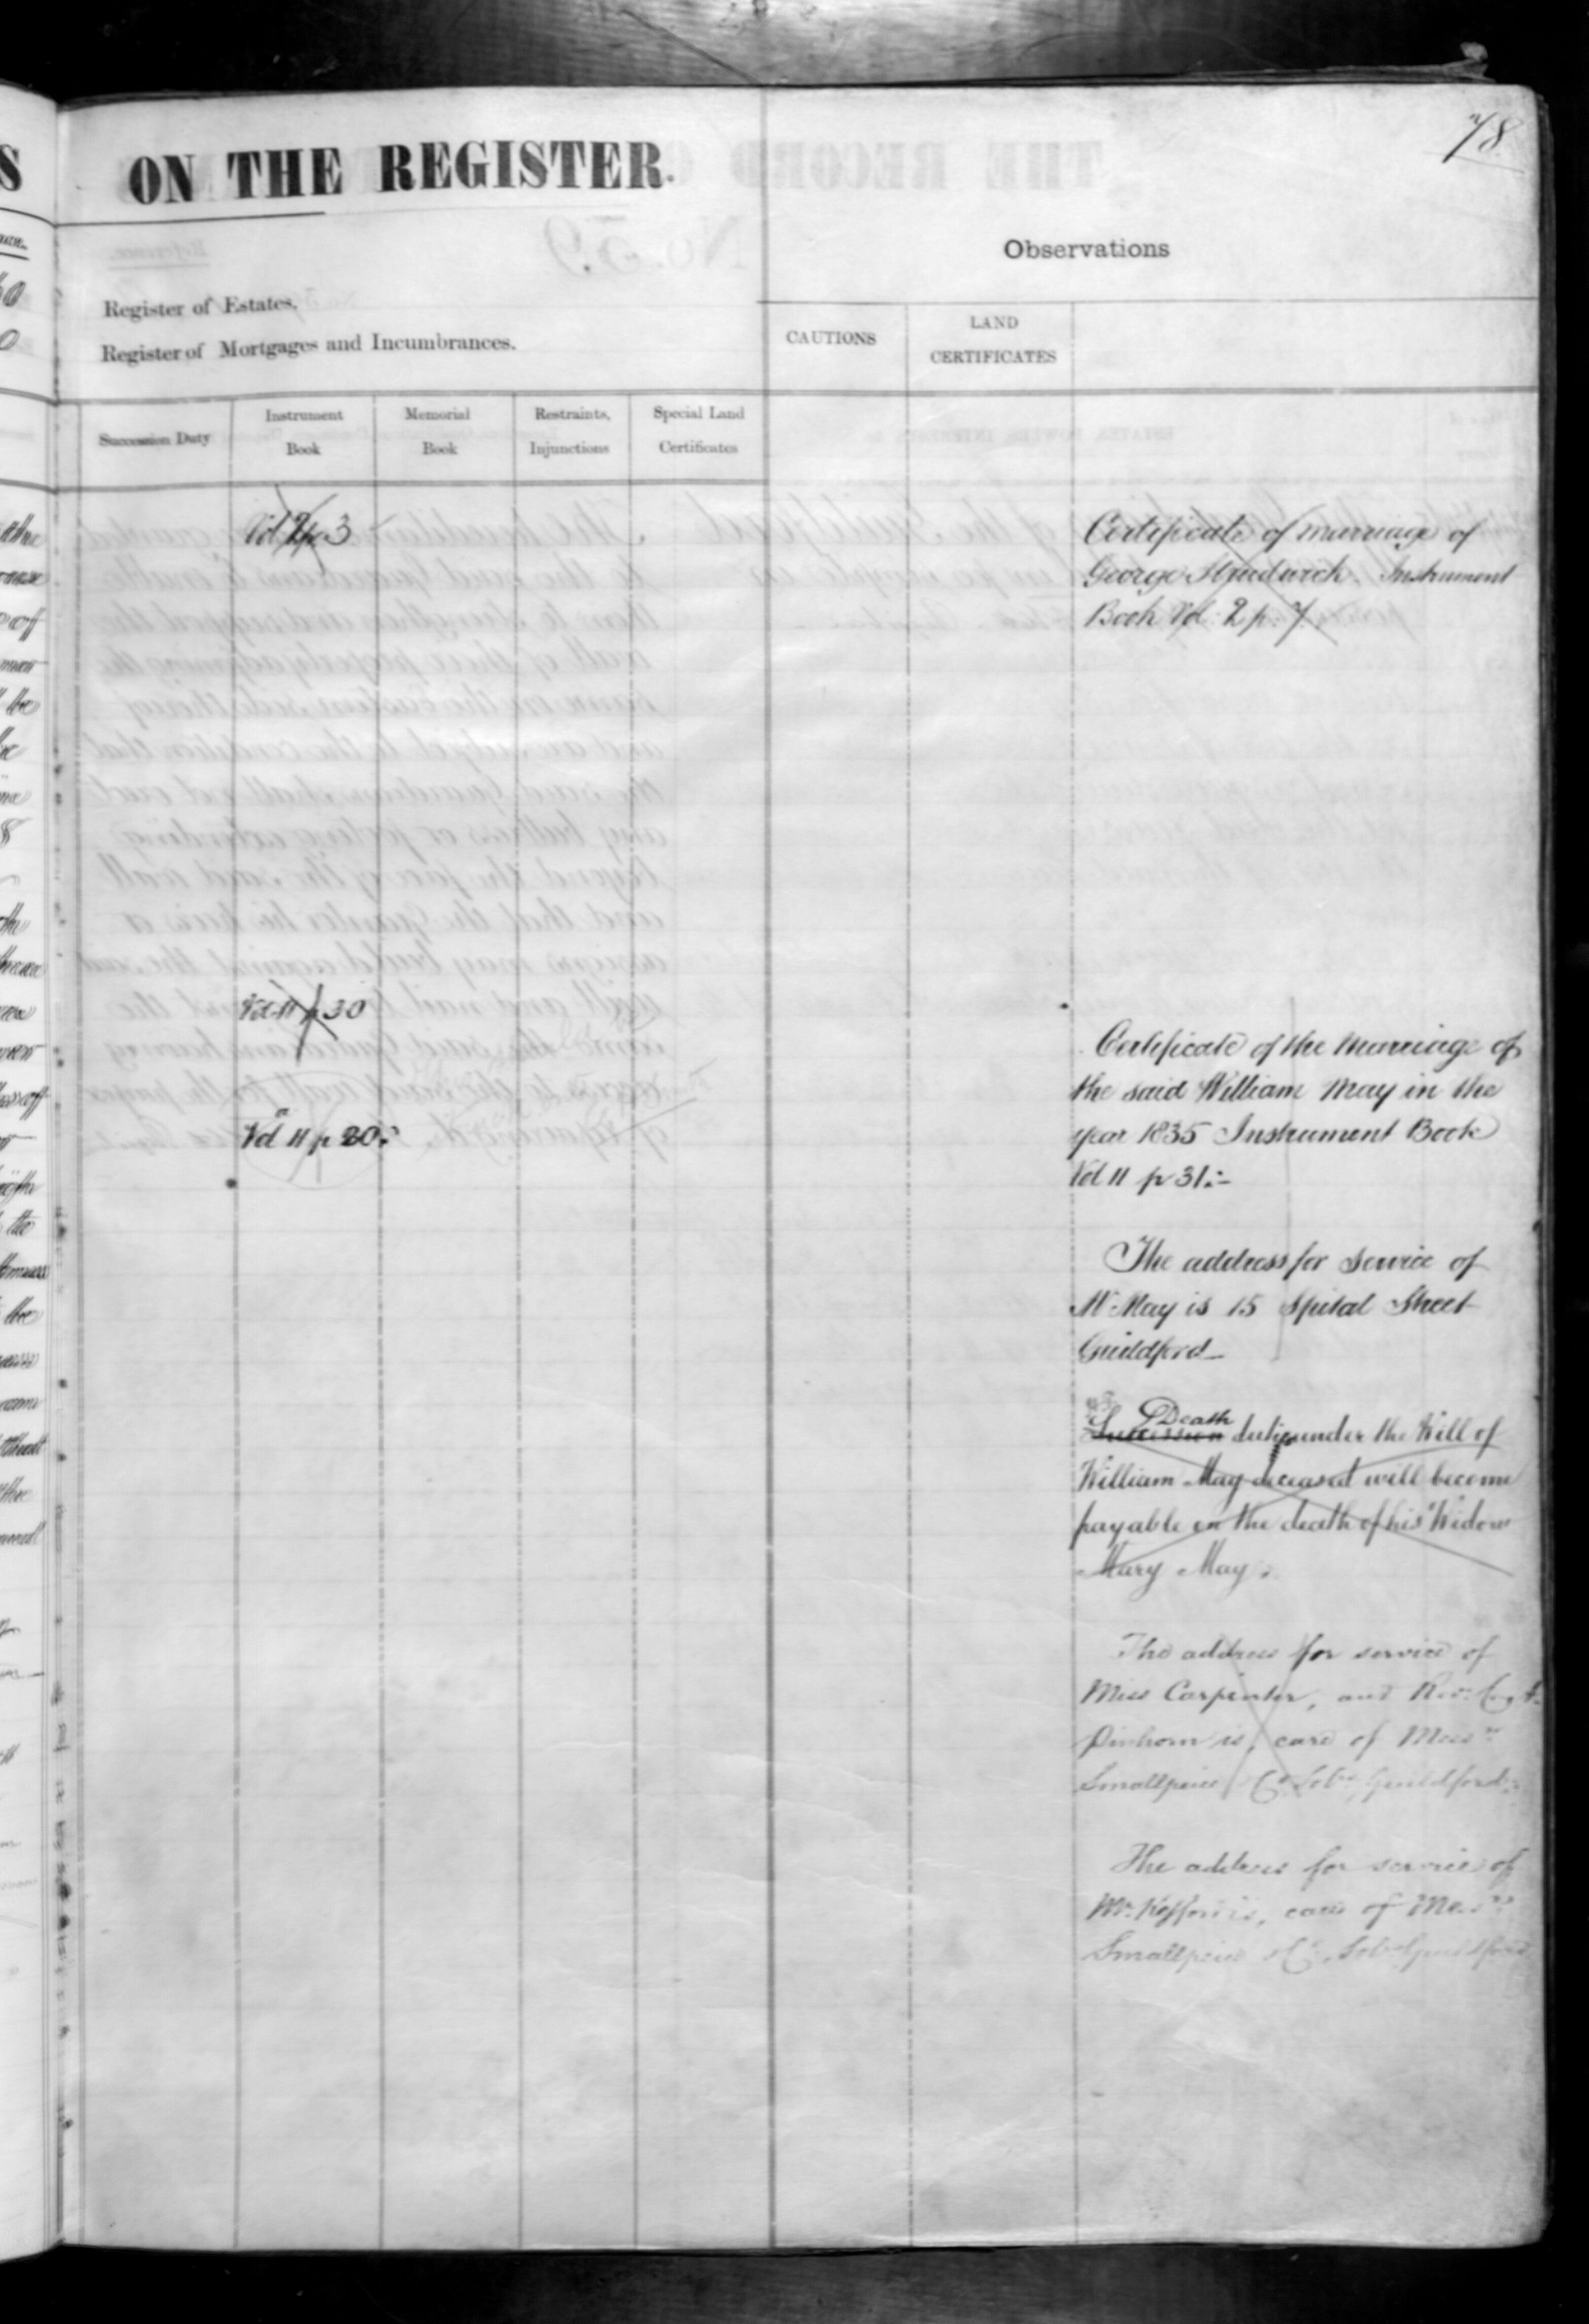 78
ON THE REGISTER.
Observations
Register of Estates.
Register of Mortgages and Incumbrances.
CAUTIONS
LAND
CERTIFICATES
Succession Duty
Instrument
Book
Memorial
Book
Restraints,
Injunctions
Special Land
Certificates
Vol 2 p 3
Certificate of marriage of
George Strudwick. Instrument
Book Vol: 2 p. 7.
Vol 11 p 30
Certificate of the Marriage of
the said William May in the
year 1835 Instrument Book
Vol 11 p 31:-
Vol 11 p 20:
The address for service of
Mr May is 15 Spital Street
Guildford
Death
Succession duty under the Will of
William May deceased will become
payable on the death of his Widow
Mary May.
The address for service of
Miss Carpenter, and
is, care of Messrs
Smallpeice & Co. Guildford
The address for service of
Mr. is, care of Messrs
Smallpeice & Co. Guildford